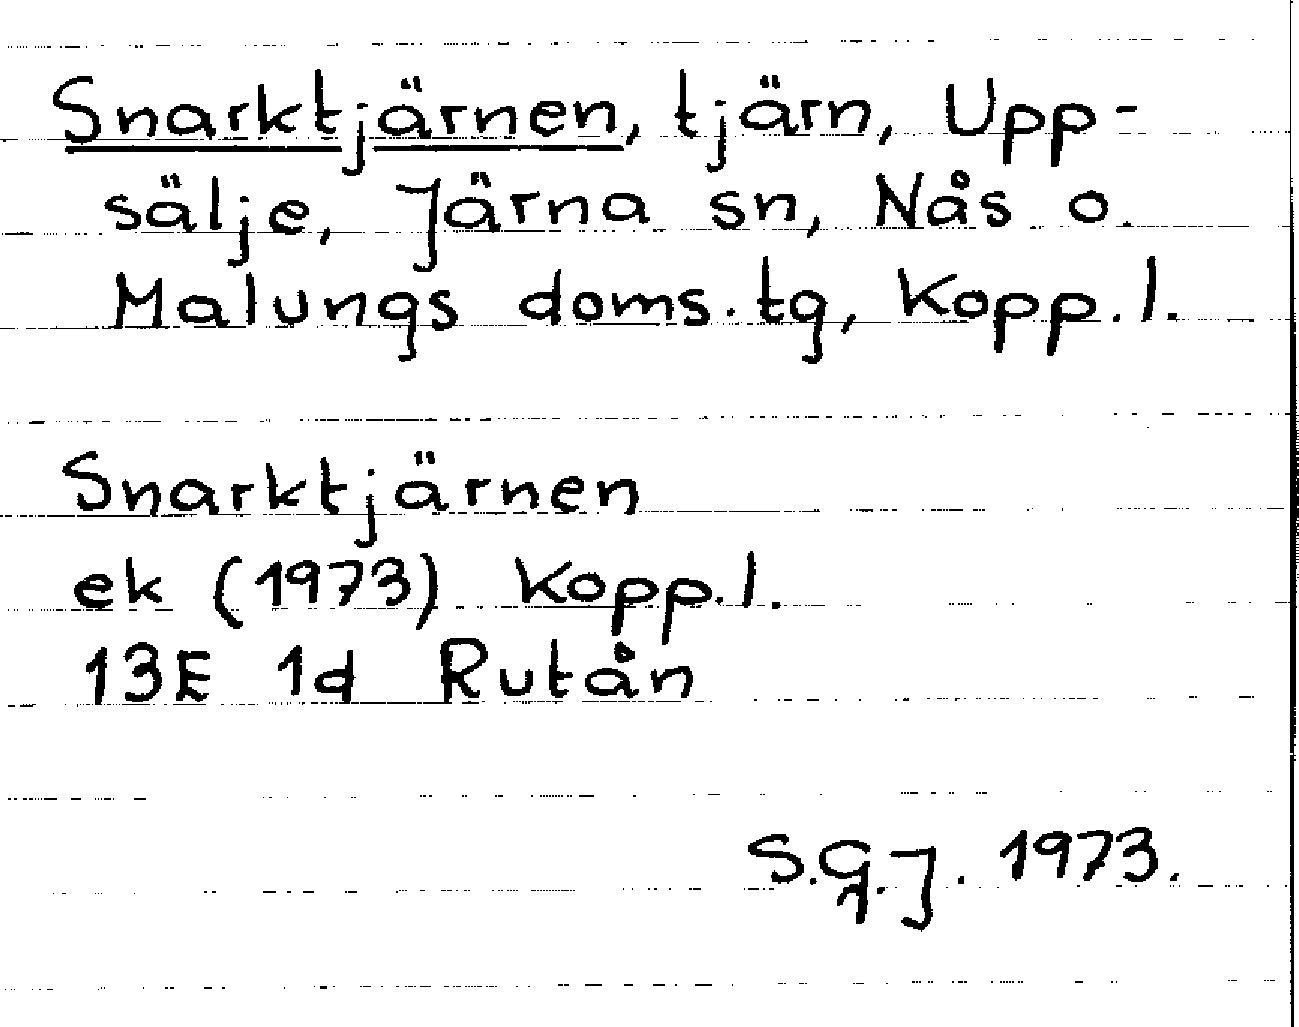 Snarktjärnen, tjärn, Upp-
sälje, Järna sn, Nås o.
Malungs doms.tg, Kopp.l.
Snarktjärnen
ek (1973) Kopp.l.
13E 1d Rutån
S.G.J. 1973.